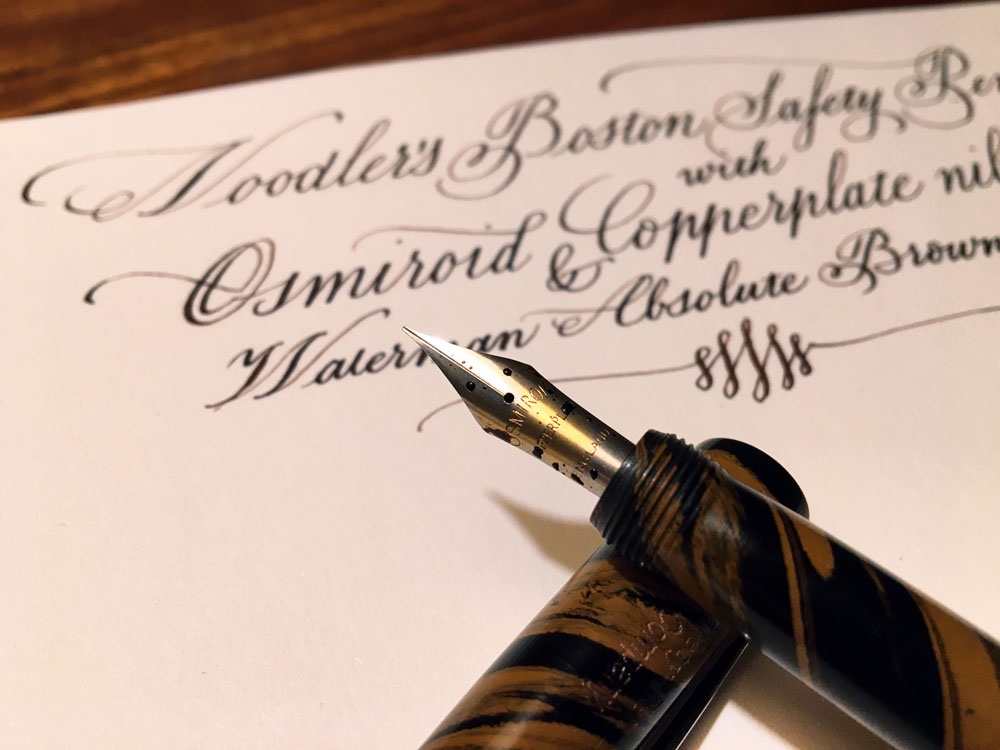 Noodler's Boston Safety Pen
with
Osmiroid Copperplate nib
& Waterman Absolute Brown
OSMIROI
ENGLAND